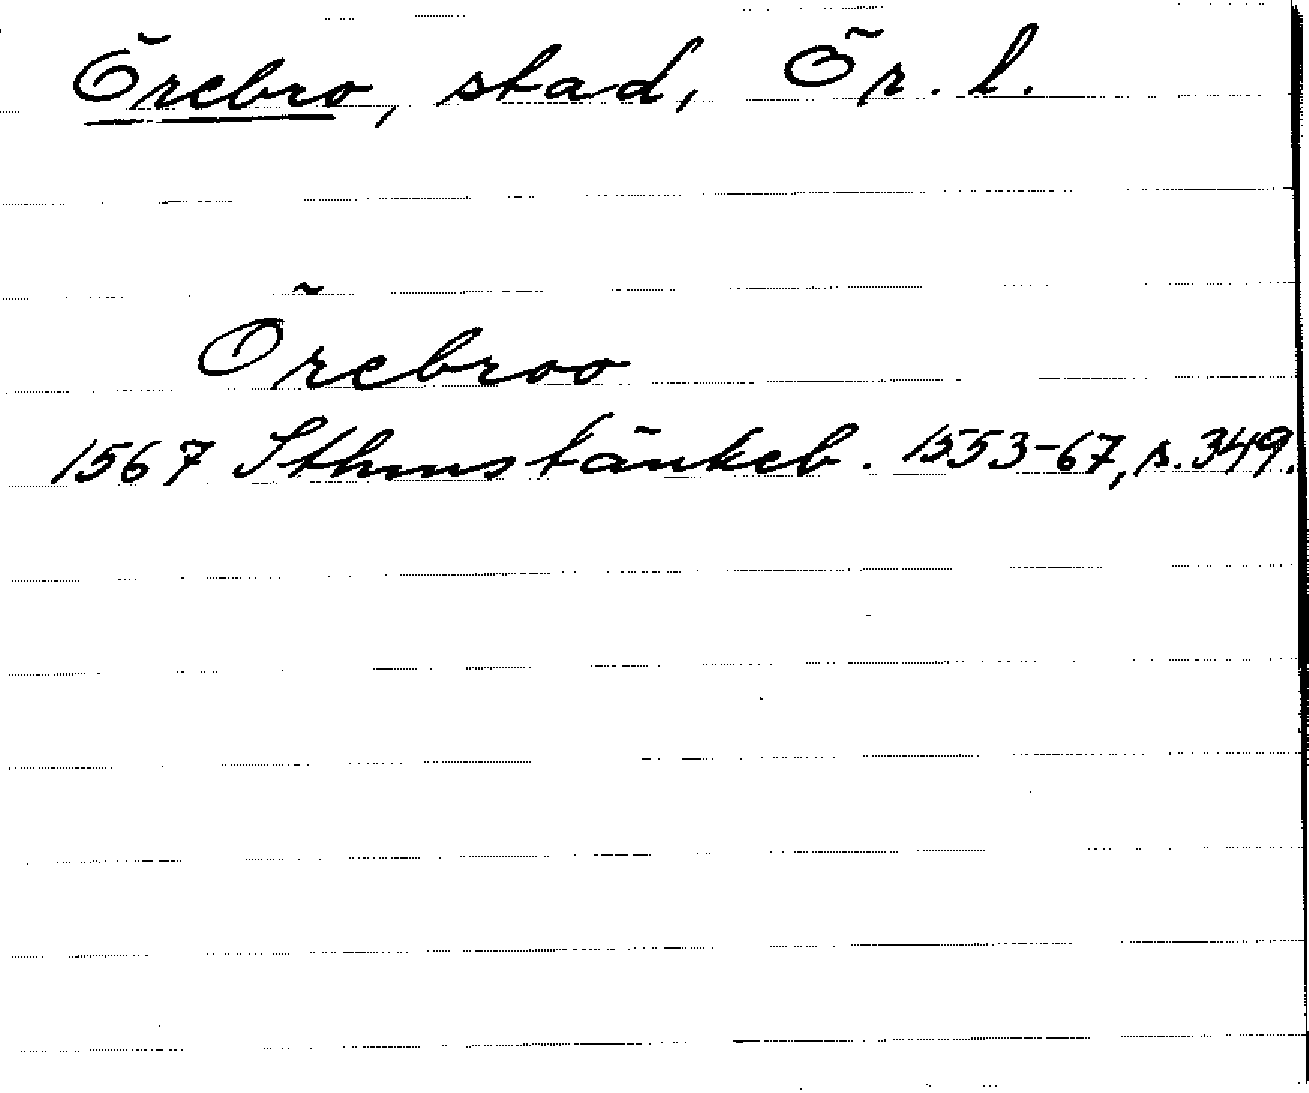 Örebro, stad, Ör. l.
Örebroo
1567 Sthms tänkeb. 1553-67, s. 349.